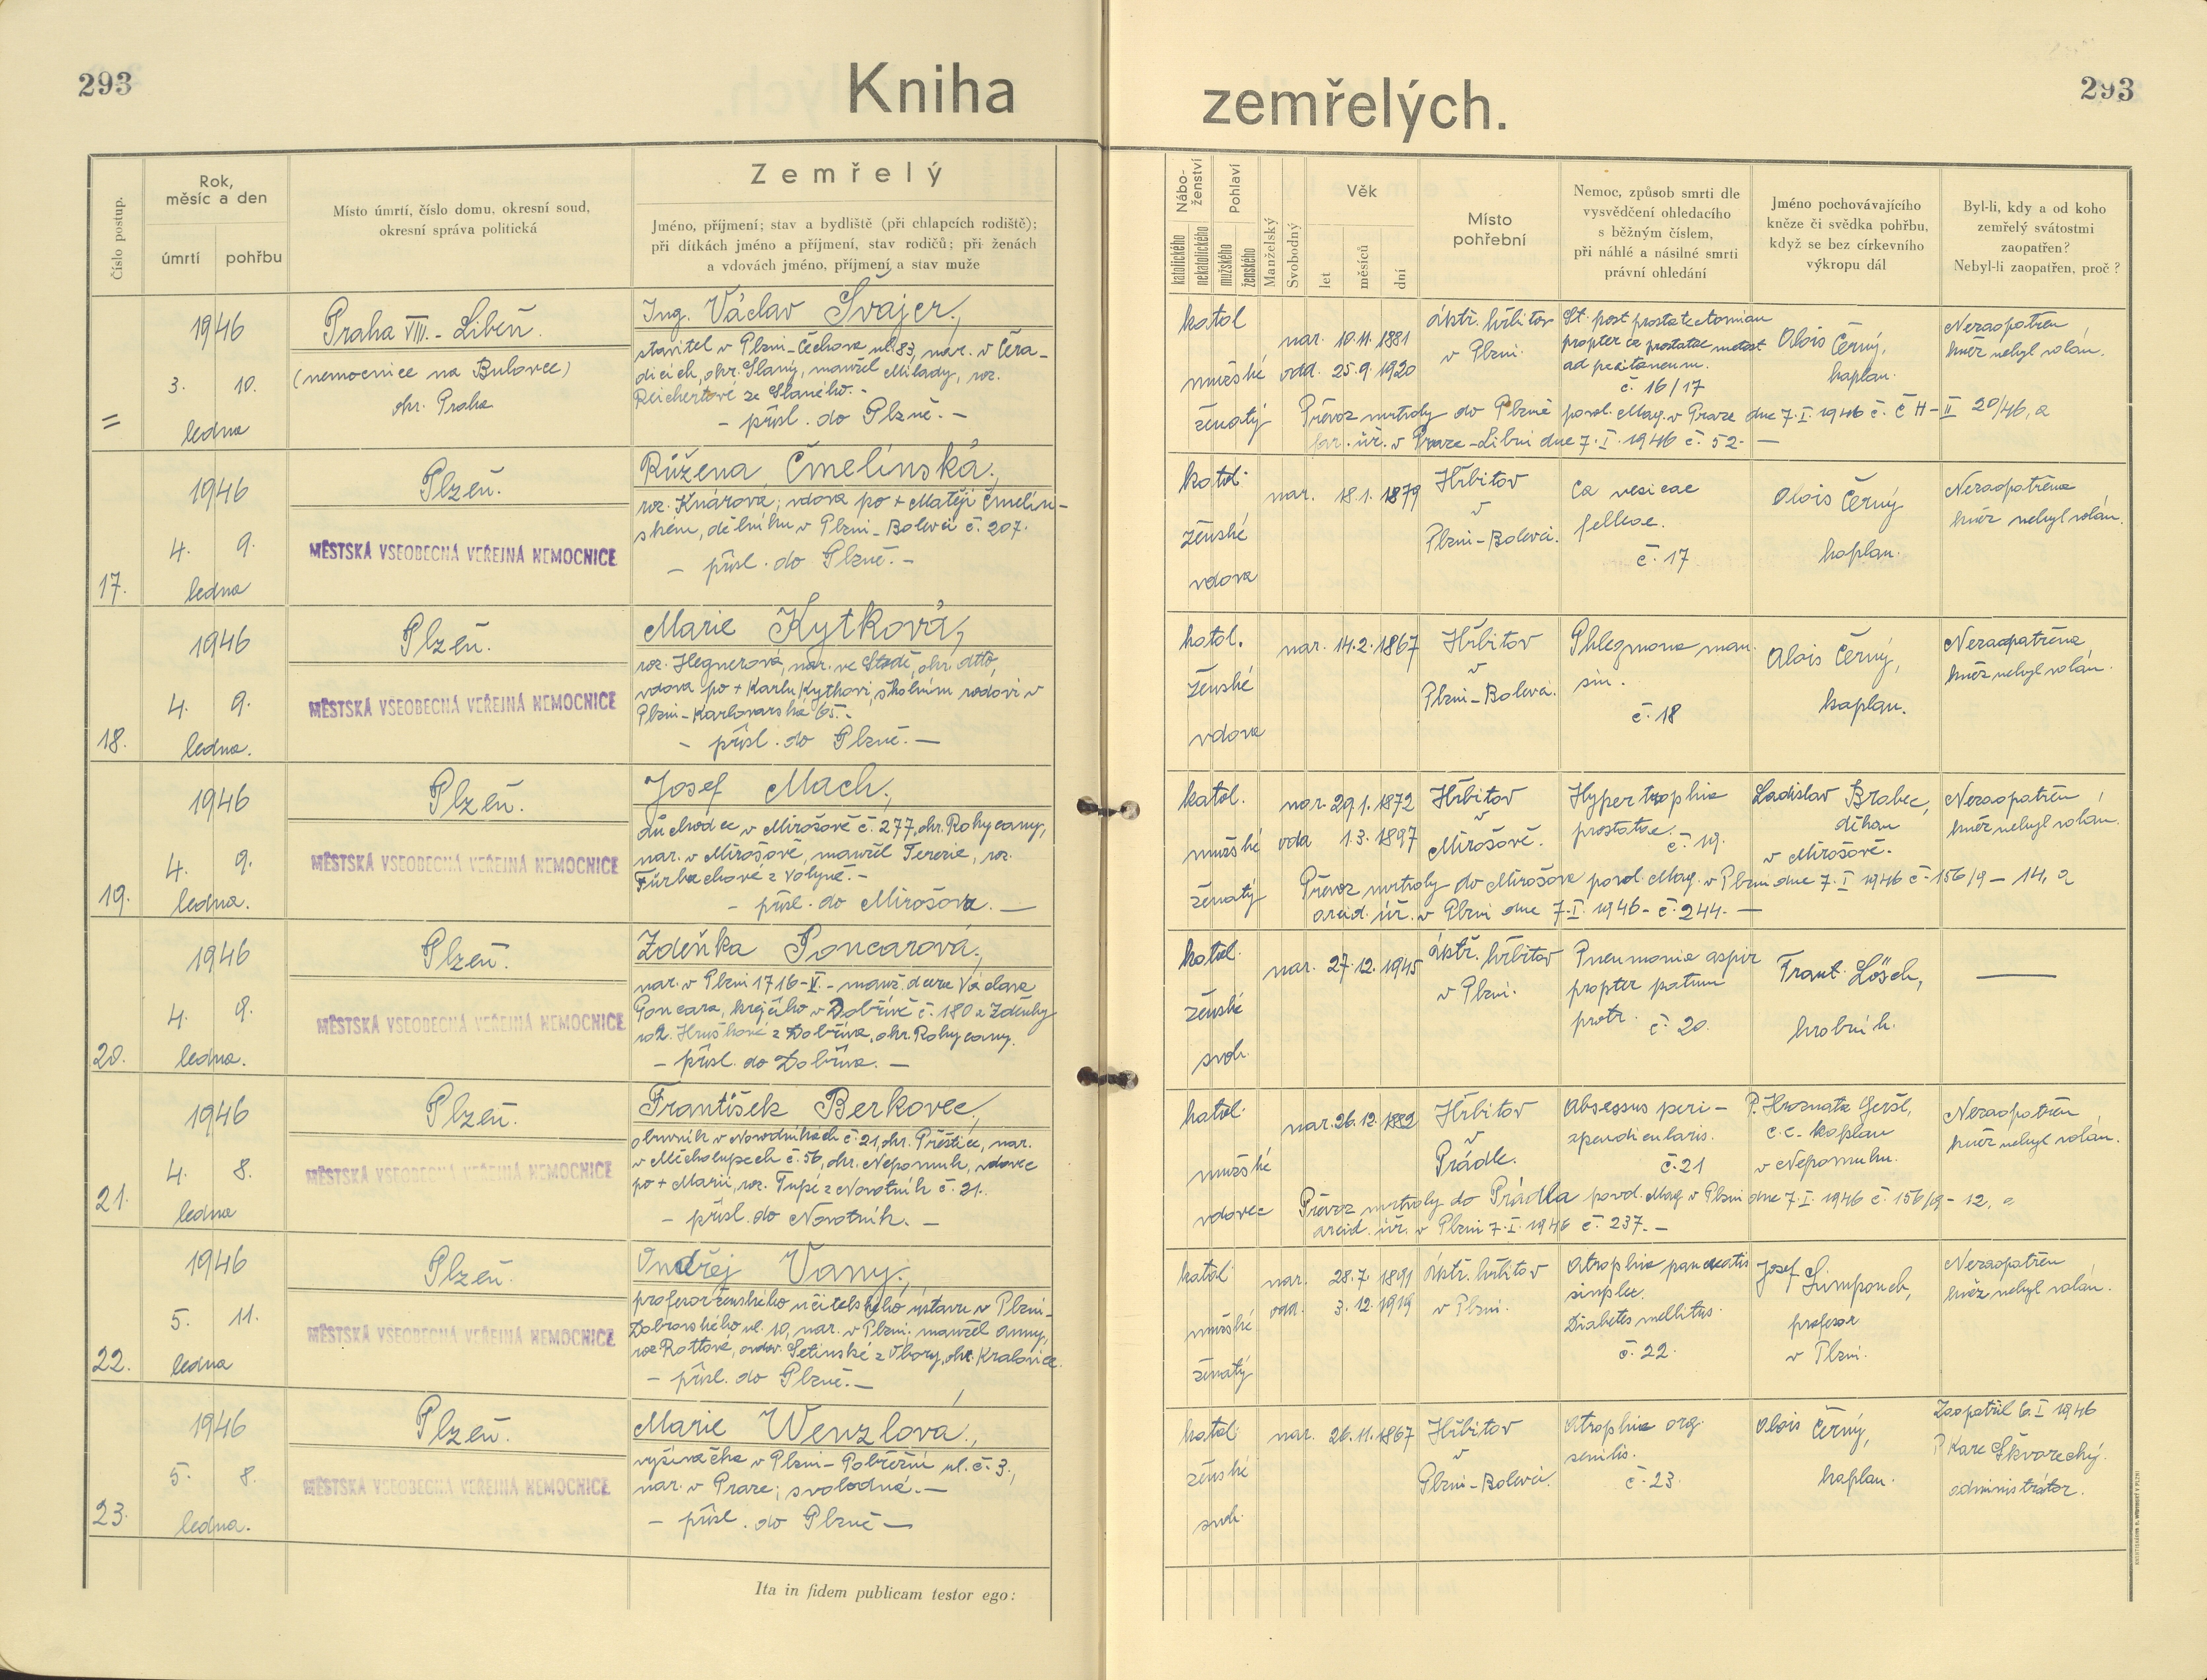 293
Kniha
zemřelých.
293
Číslo postup.
Rok,
měsíc a den
úmrtí
pohřbu
Místo úmrtí, číslo domu, okresní soud,
okresní správa politická
Zemřelý
Jméno, příjmení; stav a bydliště (při chlapcích rodiště);
při dítkách jméno a příjmení, stav rodičů; při ženách
a vdovách jméno, příjmení a stav muže
Nábo-
ženství
katolického
nekatolického
Pohlaví
mužského
ženského
Manželský
Svobodný
Věk
let
měsíců
dní
Místo
pohřební
Nemoc, způsob smrti dle
vysvědčení ohledacího
s běžným číslem,
při náhlé a násilné smrti
právní ohledání
Jméno pochovávajícího
kněze či svědka pohřbu,
když se bez církevního
výkropu dál
Byl-li, kdy a od koho
zemřelý svátostmi
zaopatřen?
Nebyl-li zaopatřen, proč?
=
1946
3. 10.
ledna
Praha VIII. - Libeň.
(nemocnice na Bulovce)
okr. Praha
Ing. Václav Švajer,
stavitel v Plzni-Čechova ul. 83, nar. v Čera-
dicích, okr. Slaný, manžel Milady, roz.
Reichertové ze Slaného. -
- přísl. do Plzně. -
katol
mužské
ženatý
nar. 10.11.1881
odd. 25.9.1920
ústř. hřbitov
v Plzni.
St. post prostatectomiam
propter ca prostatae metast
ad peritoneum.
č. 16/17
Alois Černý,
kaplan.
Nezaopatřen
kněz nebyl volán.
Převoz mrtvoly do Plzně povol. Mag. v Praze dne 7.I.1946 č. Č H-II 20/46, a
far. úř. v Praze-Libni dne 7.I.1946 č. 52. -
17.
1946
4. 9.
ledna
Plzeň.
MĚSTSKÁ VŠEOBECNÁ VEŘEJNÁ NEMOCNICE
Růžena Čmelínská,
roz. Knárova; vdova po + Matěji Čmelín-
ském, dělníku v Plzni-Bolevci č. 207.
- přísl. do Plzně. -
katol.
ženské
vdova
nar. 18.1.1879
Hřbitov
v
Plzni-Bolevci.
Ca vesicae
felleae.
č. 17
Alois Černý
kaplan.
Nezaopatřena
kněz nebyl volán.
18.
1946
4. 9.
ledna.
Plzeň.
MĚSTSKÁ VŠEOBECNÁ VEŘEJNÁ NEMOCNICE
Marie Kytková,
roz. Hegnerová, nar. ve Stodě, okr. dtto,
vdova po + Karlu Kytkovi, školním radovi v
Plzni-Karlovarská 65. -
- přísl. do Plzně. -
katol.
ženské
vdova
nar. 14.2.1867
Hřbitov
v
Plzni-Bolevci.
Phlegmona man.
sin.
č. 18
Alois Černý,
kaplan.
Nezaopatřena
kněz nebyl volán.
19.
1946
4. 9.
ledna.
Plzeň.
MĚSTSKÁ VŠEOBECNÁ VEŘEJNÁ NEMOCNICE
Josef Mach,
důchodce v Mirošově č. 277, okr. Rokycany,
nar. v Mirošově, manžel Terezie, roz.
z Volyně. -
- přísl. do Mirošova. -
katol.
mužské
ženatý
nar. 29.1.1872
odd 1.3.1897
Hřbitov
v
Mirošově.
Hypertrophia
prostatae.
č. 19.
Ladislav Brabec,
děkan
v Mirošově.
Nezaopatřen,
kněz nebyl volán.
Převoz mrtvoly do Mirošova povol. Mag. v Plzni dne 7.I 1946 č. 156/9-14, a
arcid. úř. v Plzni dne 7.I.1946 - č. 244. -
20.
1946
4. 9.
ledna.
Plzeň.
MĚSTSKÁ VŠEOBECNÁ VEŘEJNÁ NEMOCNICE
Zdeňka Poncarová,
nar. v Plzni 1716-V. - manž. dcera Václava
Poncara, krejčího v Dobřívě č. 180 a Zdeňky
roz. Hruškové z Dobříva, okr. Rokycany.
- přísl. do Dobříva. -
katol.
ženské
svob.
nar. 27.12.1945
ústř. hřbitov
v Plzni.
Pneumonia aspir
propter partum
protr. č. 20.
Frant. Lösch,
hrobník.
21.
1946
4. 8.
ledna
Plzeň.
MĚSTSKÁ VŠEOBECNÁ VEŘEJNÁ NEMOCNICE
František Berkovec,
obuvník v č. 21, okr. Přeštice, nar.
v Měcholupech č. 56, okr. Nepomuk, vdovec
po + Marii, roz. Tupé z Novotník č. 21.
- přísl. do Novotník. -
katol.
mužské
vdovec
nar. 26.12.1882
Hřbitov
v
Prádle.
Absessus peri-
apendicularis.
č. 21
P. Hroznata Geršl,
c. c. kaplan
v Nepomuku.
Nezaopatřen
kněz nebyl volán.
Převoz mrtvoly do Prádla povol. Mag v Plzni dne 7.I 1946 č. 156/9-12, a
arcid. úř. v Plzni 7.I 1946 č. 237. -
22.
1946
5. 11.
ledna
Plzeň.
MĚSTSKÁ VŠEOBECNÁ VEŘEJNÁ NEMOCNICE
Ondřej Vany,
profesor ženského učitelského ústavu v Plzni-
Dobrovského ul. 10, nar. v Plzni, manžel Anny,
roz Rottové, ovdov. Setinské z Obory, okr. Kralovice.
- přísl. do Plzně. -
katol
mužské
ženatý
nar. 28.7.1891
odd. 3.12.1919
ústř. hřbitov
v Plzni.
Atrophia pancreatis
simplex.
Diabetes mellitus.
č. 22.
Josef Limpouch,
profesor
v Plzni.
Nezaopatřen
kněz nebyl volán.
23.
1946
5. 8.
ledna.
Plzeň.
MĚSTSKÁ VŠEOBECNÁ VEŘEJNÁ NEMOCNICE
Marie Wenzlová,
vyšívačka v Plzni-Pobřežní ul. č. 3,
nar. v Praze; svobodná. -
- přísl. do Plzně -
katol.
ženské
svob.
nar. 26.11.1867
Hřbitov
v
Plzni-Bolevci.
Atrophia org.
senilis.
č. 23.
Alois Černý,
kaplan.
Zaopatřil 6.I 1946
P. Karel Škvorecký.
administrátor.
Ita in fidem publicam testor ego: